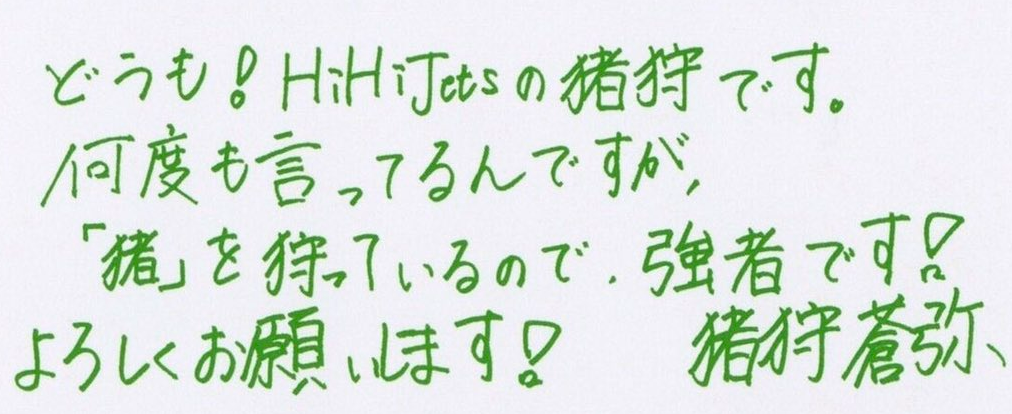 どうも!HiHiJetsの猪狩です。
何度も言ってるんですが、
「猪」を狩っているので、強者です!
よろしくお願いします! 猪狩蒼弥